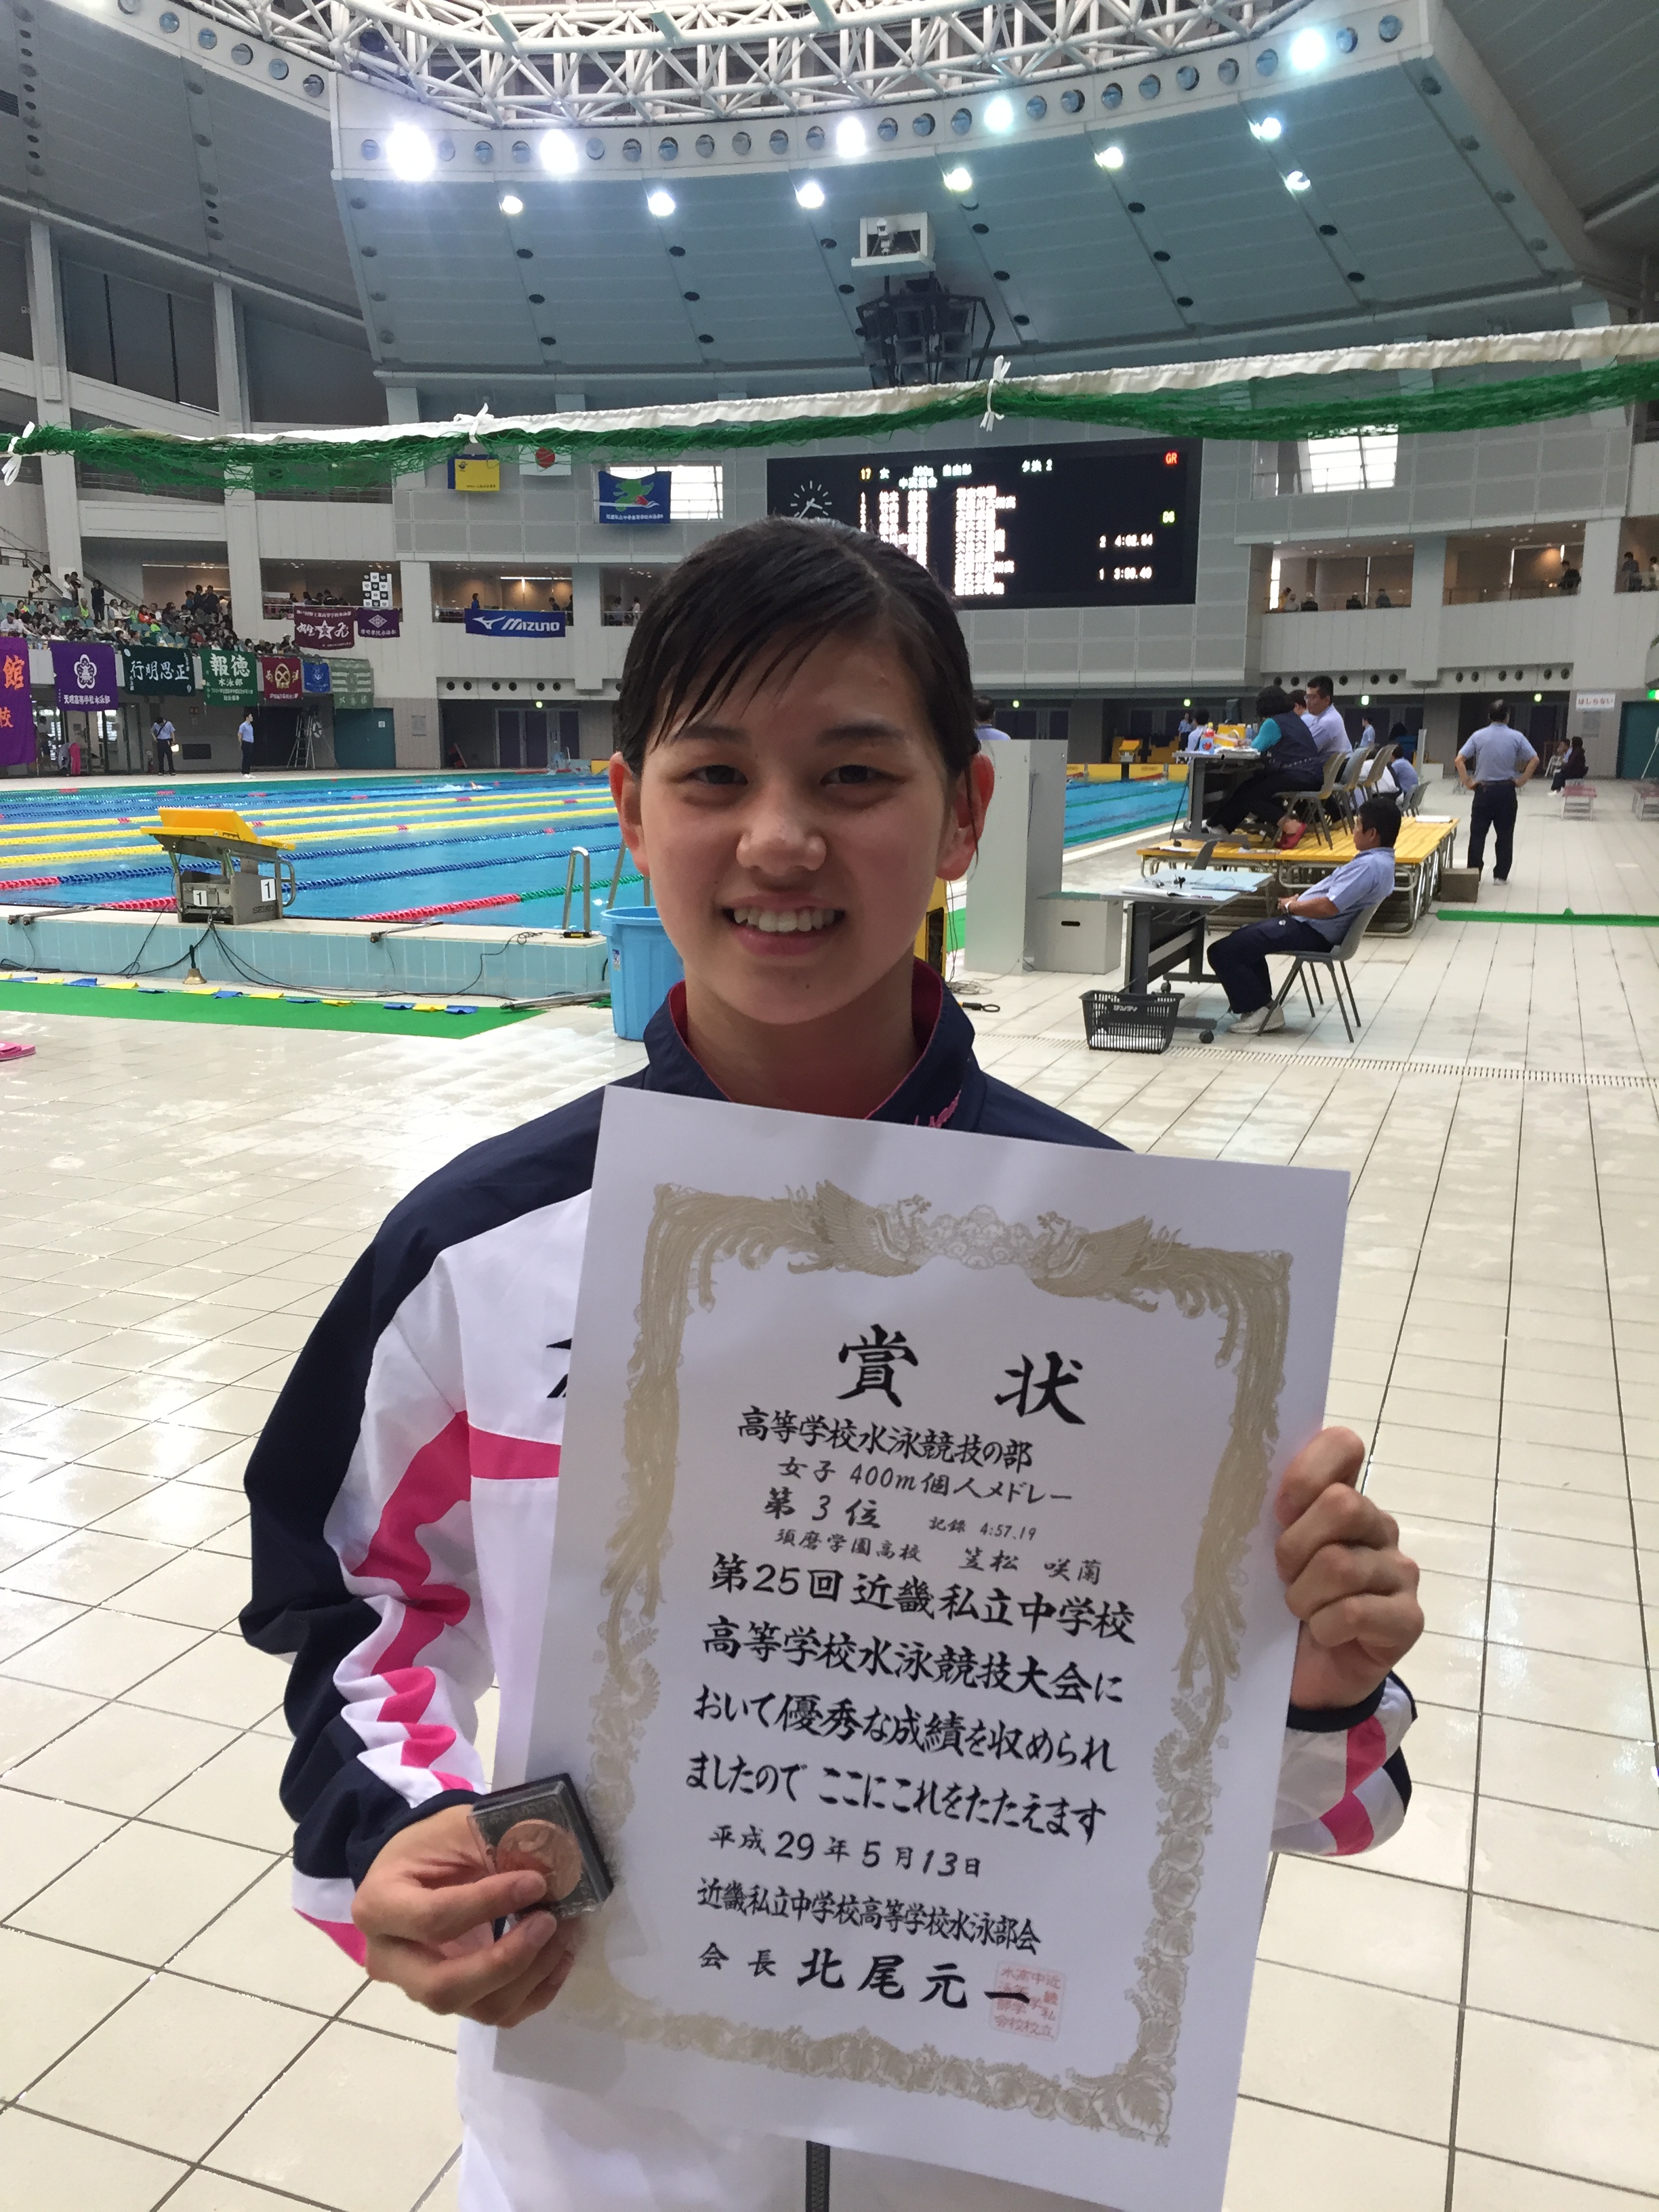 17 女
自由形
夕決 2
GR
2 4:02.84
MIZUNO
館
校
行明思正
報徳
水泳部
はしらない
1
1
賞 状
高等学校水泳競技の部
女子 400m個人メドレー
第 3 位 記録 4:57.19
須磨学園高校 笠松 咲蘭
第25回近畿私立中学校
高等学校水泳競技大会に
おいて優秀な成績を収められ
ましたので ここにこれをたたえます
平成 29 年 5 月 13 日
近畿私立中学校高等学校水泳部会
会 長 北 尾 元 一